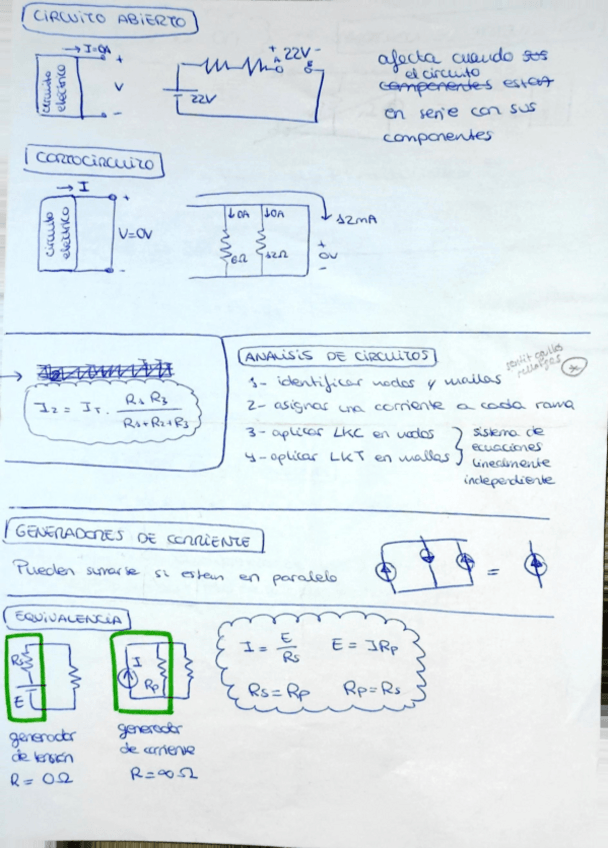 CIRCUITO ABIERTO
→ I=0A
+
circuito eléctrico
V
-
22V
+ 22V -
afecta cuando sus
el circuito
componentes estan
en serie con sus
componentes
CORTOCIRCUITO
→ I
+
circuito eléctrico
V=0V
-
↓0A ↓0A
6Ω 12Ω
↓ 12mA
+
0V
-
→
I₂ = I_T · R₁ R₃ / R₁+R₂+R₃
ANALISIS DE CIRCUITOS
1- identificar nodos y mallas
2- asignar una corriente a cada rama
3- aplicar LKC en nodos
4- aplicar LKT en mallas
sistema de
ecuaciones
linealmente
independiente
GENERADORES DE CORRIENTE
Pueden sumarse si estan en paralelo
=
EQUIVALENCIA
Rs
E
I
Rp
I = E / Rs E = I Rp
Rs = Rp Rp = Rs
generador
de tensión
R = 0Ω
generador
de corriente
R = ∞Ω